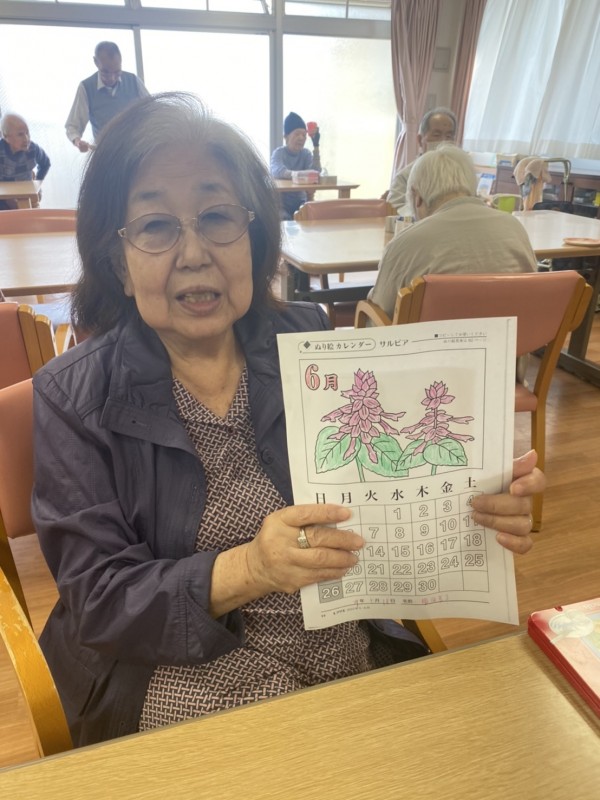 ぬり絵 カレンダー サルビア
6月
日 月 火 水 木 金 土
1 2 3 4
7 8 9 10
14 15 16 17 18
20 21 22 23 24 25
26 27 28 29 30